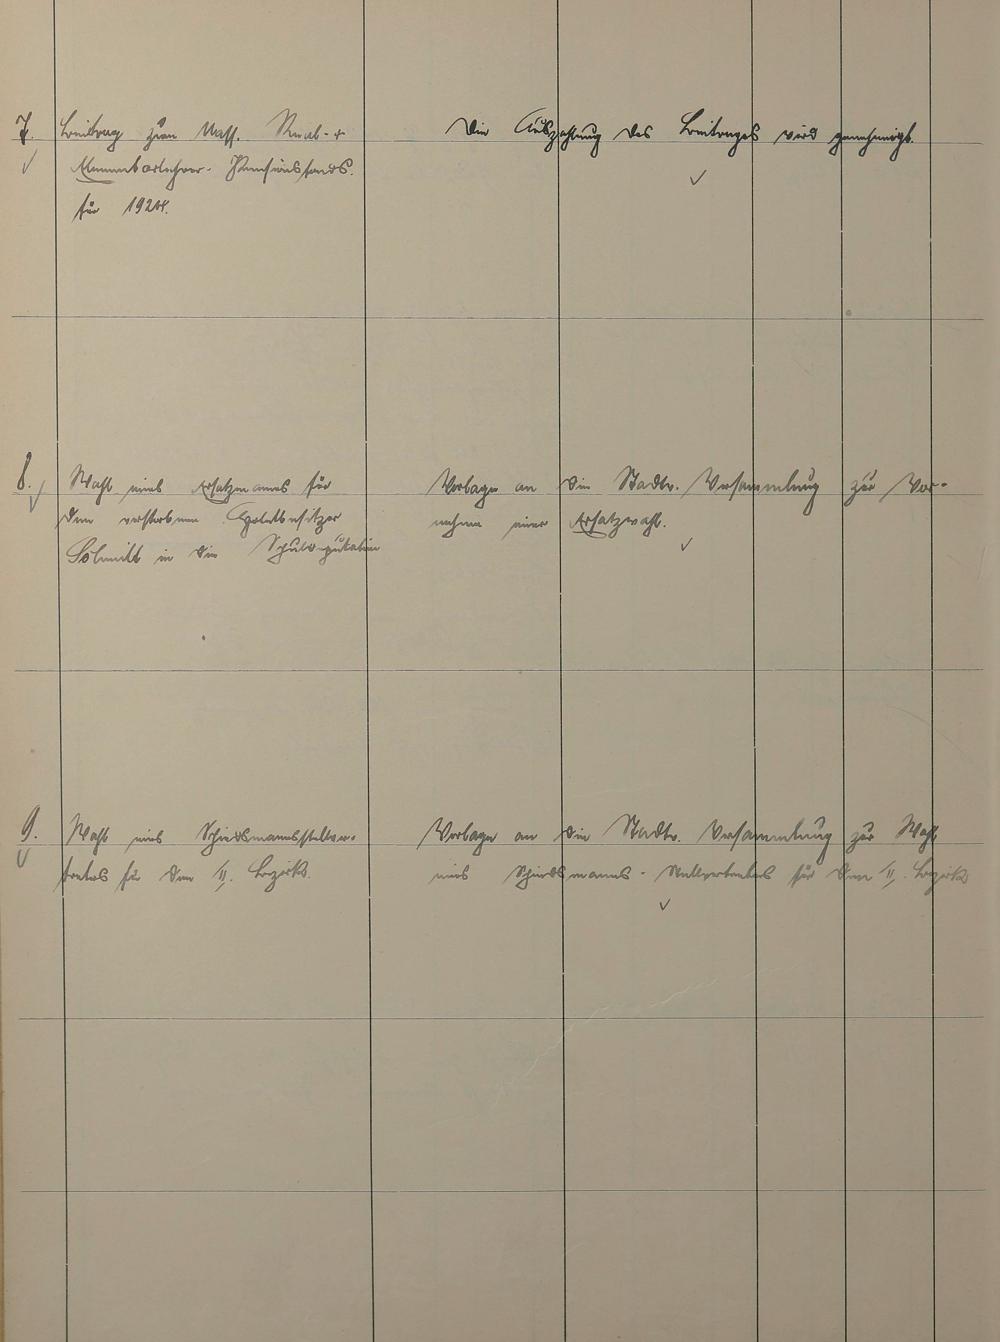 7. Beitrag zum Nass. Real- +
Elementarlehrer- Pensionsfonds.
für 1924.
Die Auszahlung des Beitrages wird genehmigt.
8. Wahl eines Ersatzmannes für
den verstorbenen Hotelbesitzer
Schmitt in die Schuldeputation
Vorlage an die Stadtv. Versammlung zur Vor-
nahme einer Ersatzwahl.
9. Wahl eines Schiedsmannsstellver-
treters für den II. Bezirk.
Vorlage an die Stadtv. Versammlung zur Wahl
eines Schiedsmanns-Stellvertreters für den II. Bezirk